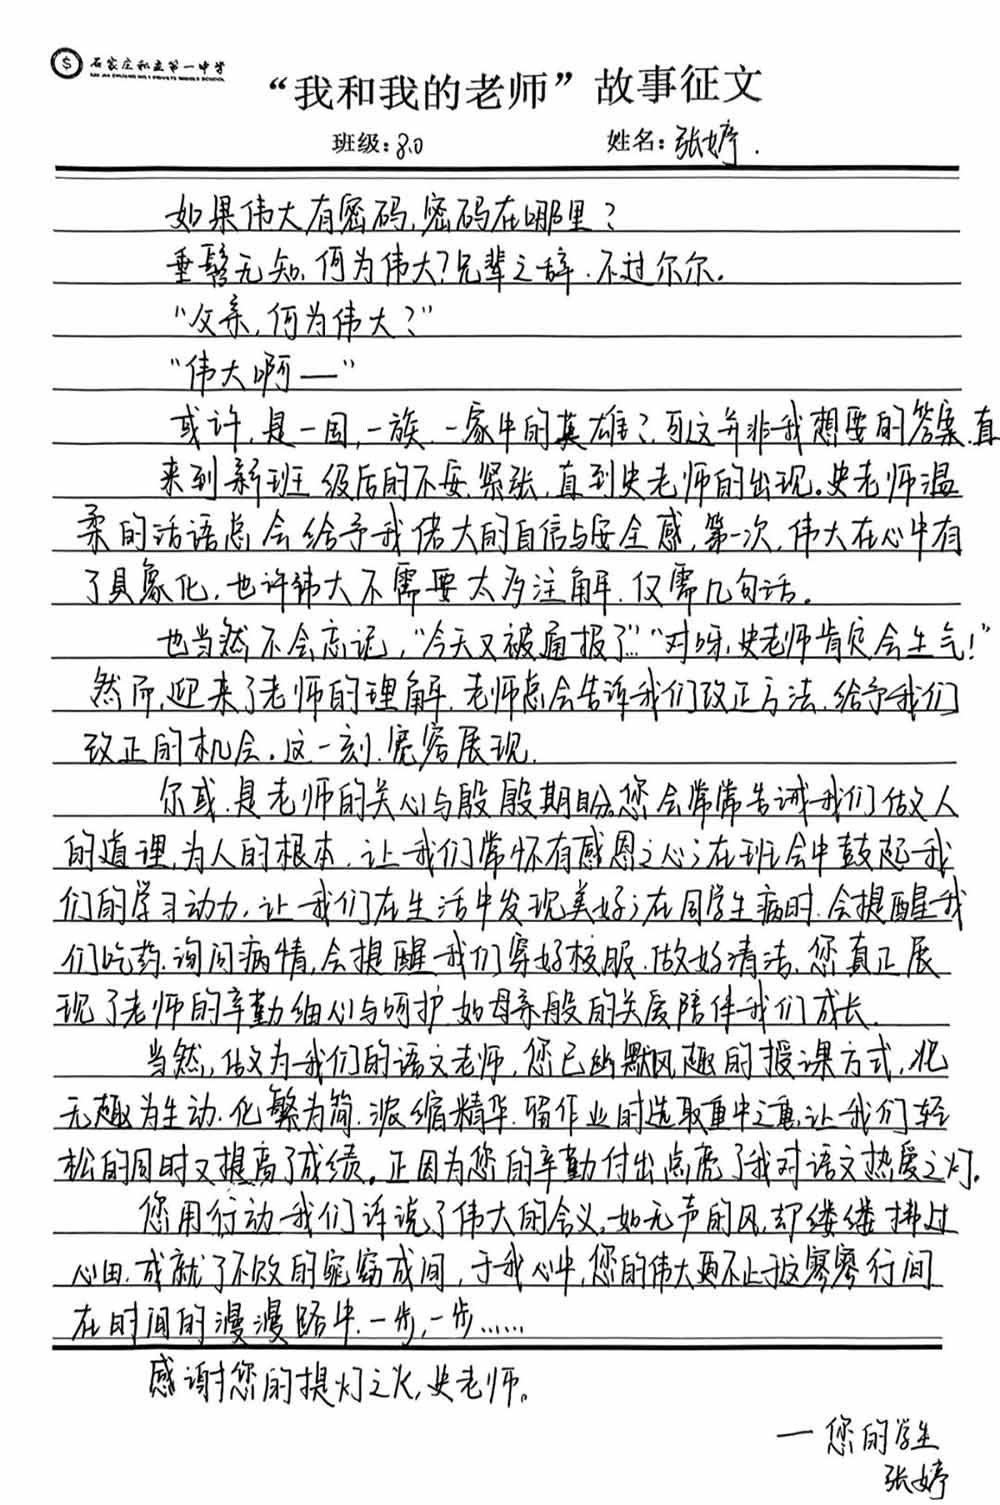 石家庄私立第一中学
“我和我的老师”故事征文
班级:8.0 姓名:张婷.
如果伟大有密码,密码在哪里?
垂髫无知,何为伟大?兄辈之辞,不过尔尔。
“父亲,何为伟大?”
“伟大啊——”
或许,是一国,一族,一家中的英雄?可这并非我想要的答案,直
来到新班级后的不安,紧张,直到史老师的出现。史老师温
柔的话语总会给予我偌大的自信与安全感,第一次,伟大在心中有
了具象化,也许伟大不需要太多注解,仅需几句话。
也当然不会忘记,“今天又被通报了…”“对呀,史老师肯定会生气!”
然而,迎来了老师的理解,老师总会告诉我们改正方法,给予我们
改正的机会。这一刻,宽容展现.
尔或,是老师的关心与殷殷期盼。您会常常告诫我们做人
的道理,为人的根本,让我们常怀有感恩之心;在班会中鼓起我
们的学习动力,让我们在生活中发现美好;在同学生病时,会提醒我
们吃药,询问病情,会提醒我们穿好校服,做好清洁,您真正展
现了老师的辛勤细心与呵护,如母亲般的关爱陪伴我们成长.
当然,做为我们的语文老师,您已幽默风趣的授课方式,化
无趣为生动,化繁为简,浓缩精华,留作业时选取重中之重,让我们轻
松的同时又提高了成绩。正因为您的辛勤付出点亮了我对语文热爱之灯.
您用行动我们诉说了伟大的含义,如无声的风,却缕缕拂过
心田,成就了不败的窕窈成间,于我心中,您的伟大更不止于这寥寥行间
在时间的漫漫路中,一步,一步……
感谢您的提灯之火,史老师。
—您的学生
张婷